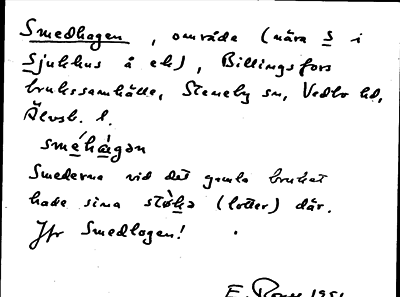 Smedhagen, område (nära S i
Sjukhus å ek), Billingsfors
brukssamhälle, Steneby sn, Vedbo hd,
Älvsb. l.
smé̱hà̱gən
Smederna vid det gamla bruket
hade sina (lotter) där.
Jfr Smedlogen!
E. 1951